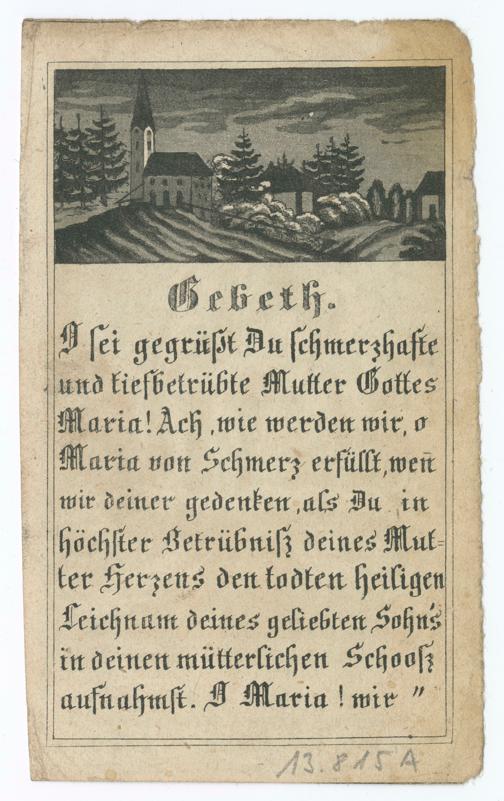 Gebeth.
O sei gegrüßt Du schmerzhafte
und tiefbetrübte Mutter Gottes
Maria! Ach, wie werden wir, o
Maria von Schmerz erfüllt, weñ
wir deiner gedenken, als Du in
höchster Betrübniß deines Mut=
ter Herzens den todten heiligen
Leichnam deines geliebten Sohn's
in deinen mütterlichen Schooß
aufnahmst. O Maria! wir "
13.815 A